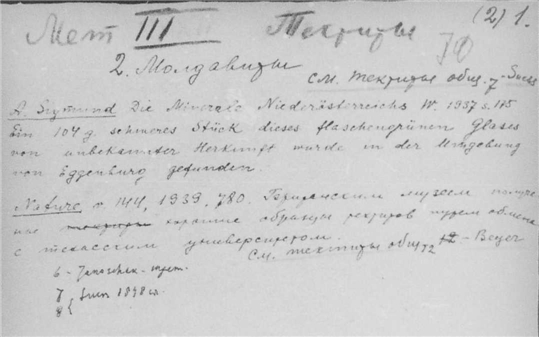 Мет III Тектиты (2) 1.
2. Молдавиты 70
см. тектиты общ. 7 - Suess
A. Sigmund Die Minerale Niederösterreichs W. 1937 s. 115
Ein 104 g. schweres Stück dieses flaschengrünen Glases
von unbekannter Herkunft wurde in der Umgebung
von Eggenburg gefunden.
Nature, v 144, 1939, 780. Германским музеем получе
ны хорошие образцы тектитов путем обмена
с техасским университетом.
см. тектиты общ 72 - Beyer
6 - Janoschek
7 } Suess 1898 в.
8